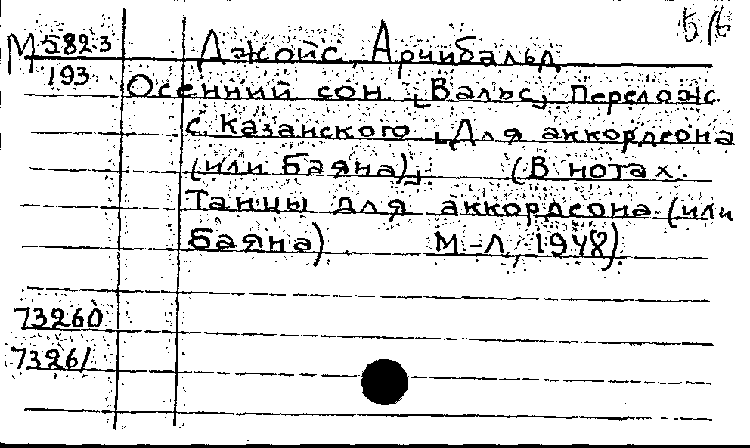 5/б
М 582-3
193
Джойс, Арчибальд
Осенний сон [Вальс] Перелож.
С. Казанского [Для аккордеона
(или баяна)] (В нотах:
Танцы для аккордеона (или
баяна) М-Л, 1948)
73260
73261